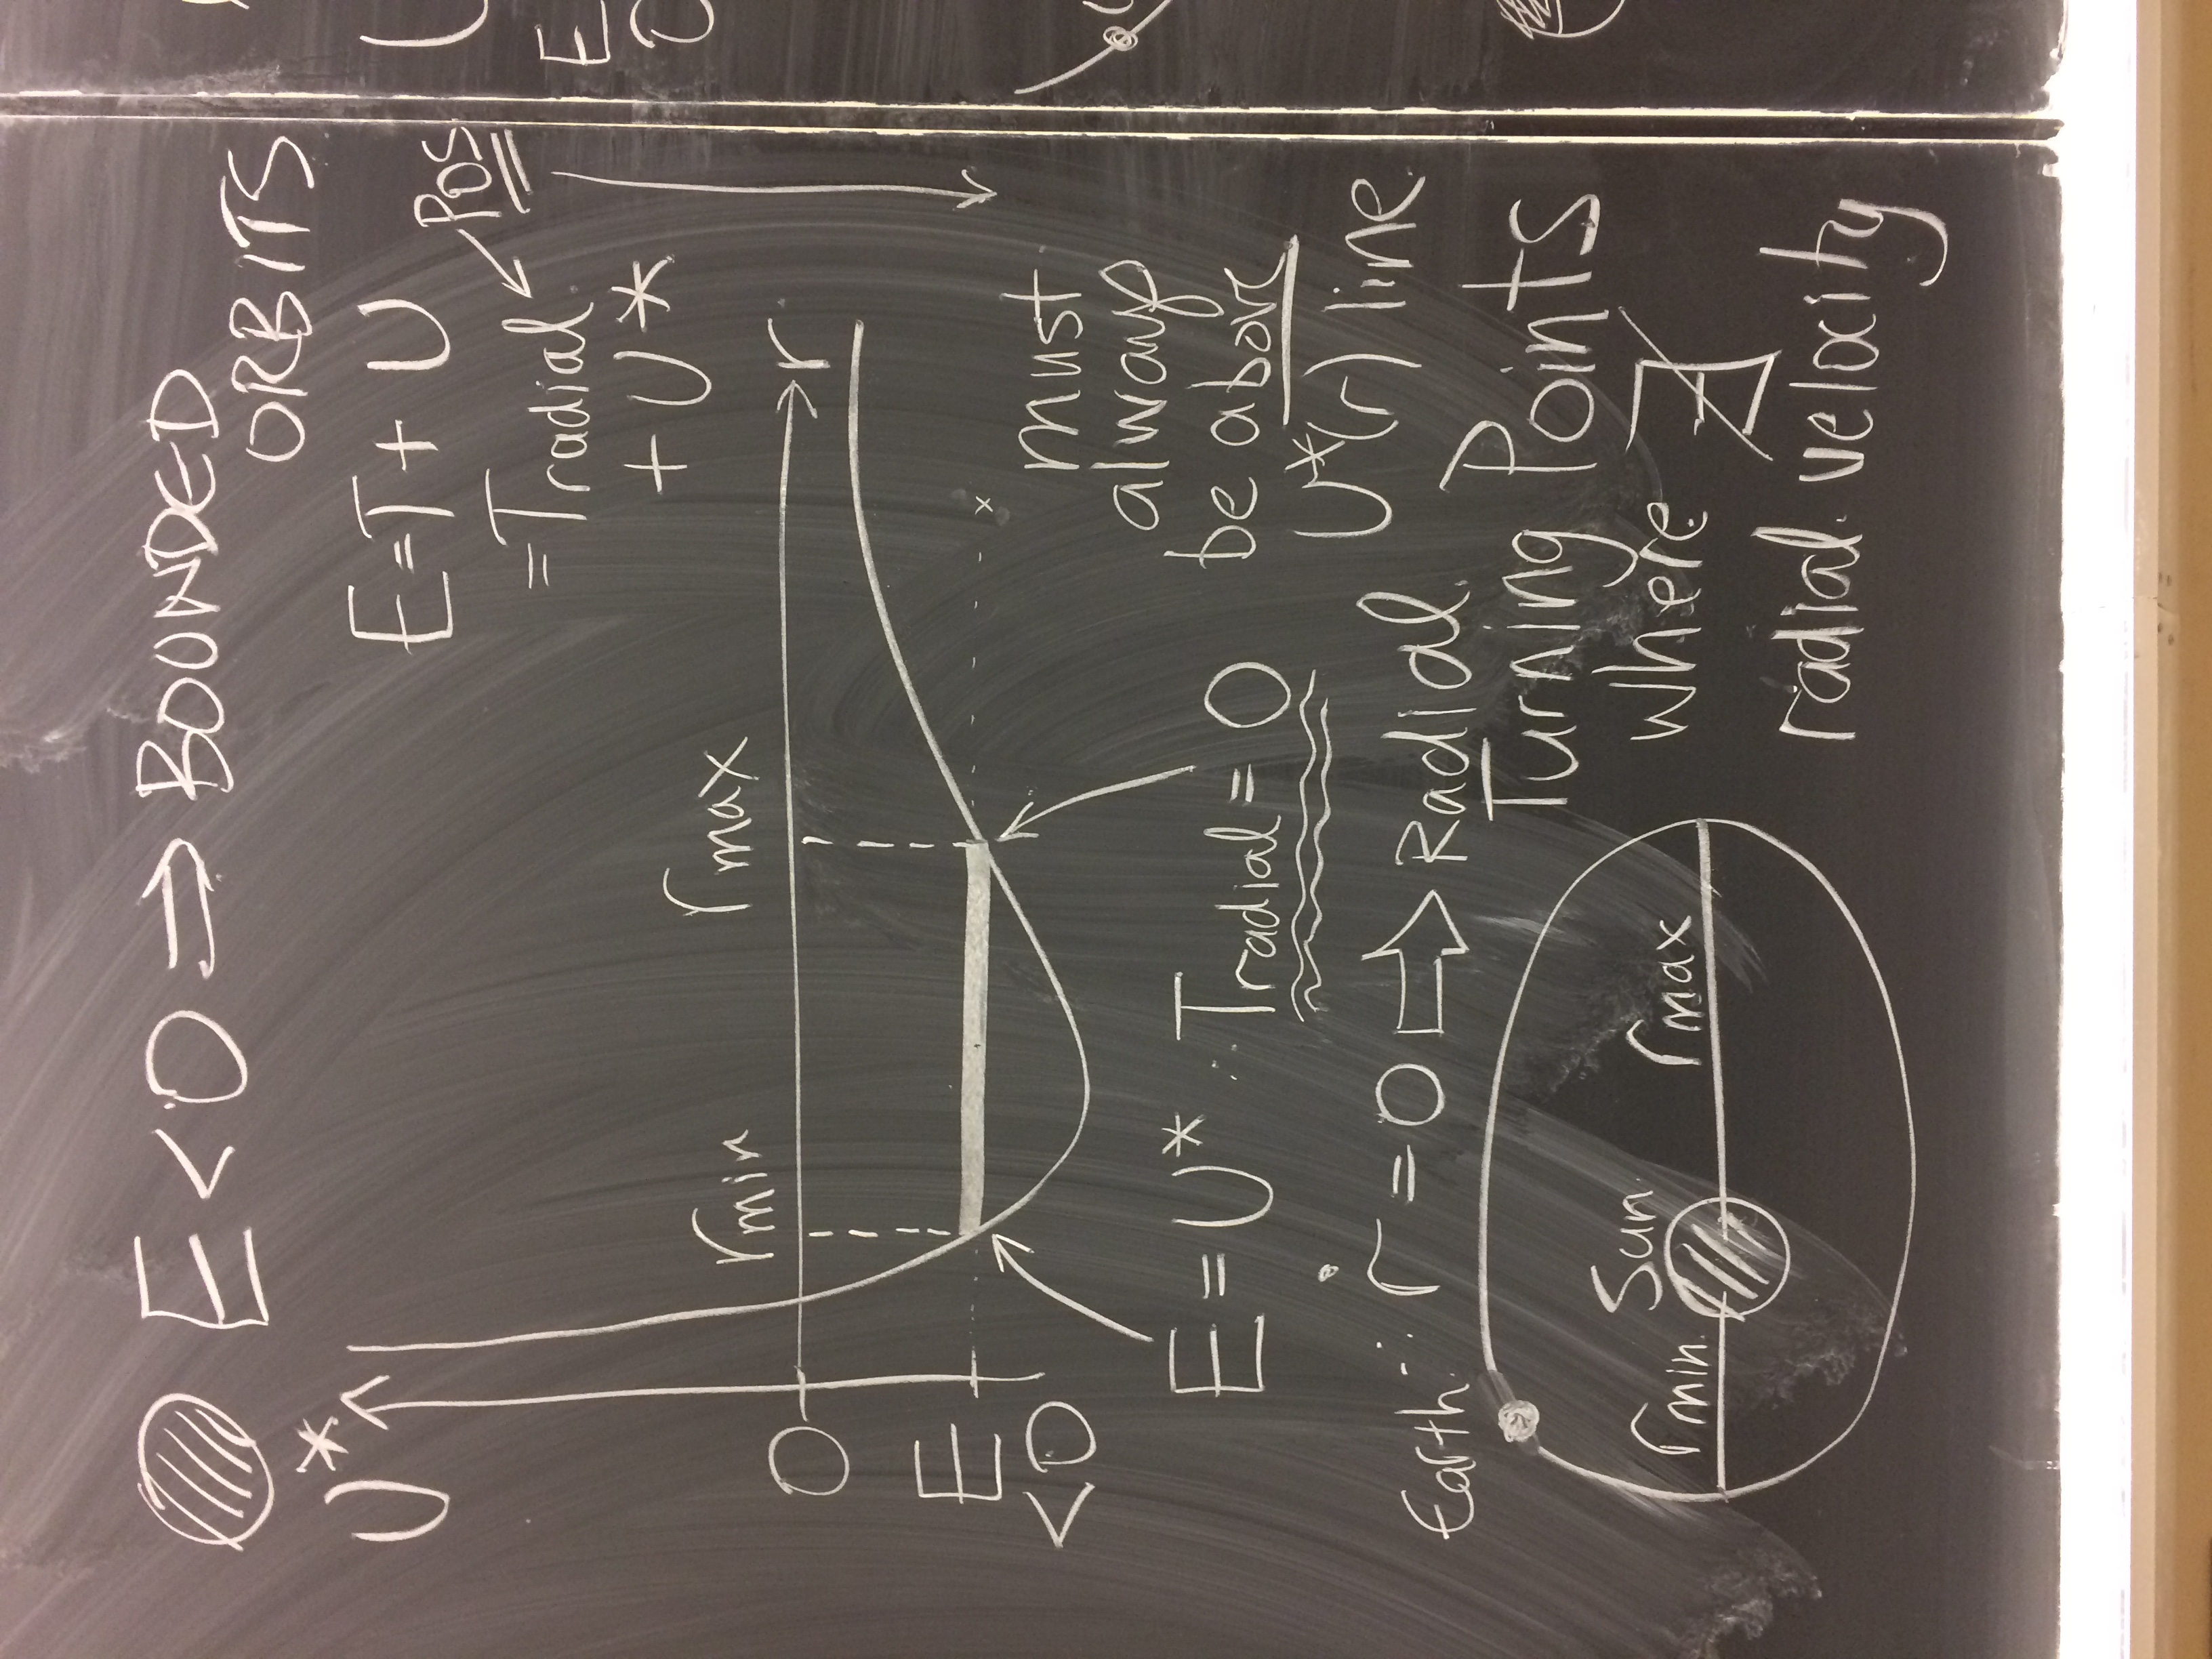 E < 0 ⇒ BOUNDED
ORBITS
U*
E = T + U
= Tradial ← Pos
+ U*
rmin
rmax
r
0
E
< 0
must
always
be above
U*(r) line.
E = U* ∴ Tradial = 0
∴ ṙ = 0 ⇒ Radial
Turning Points
where
radial velocity
Earth
Sun
rmin
rmax